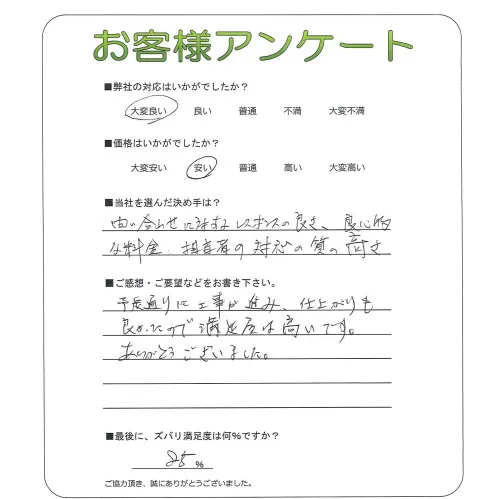 お客様アンケート
■弊社の対応はいかがでしたか？
大変良い 良い 普通 不満 大変不満
■価格はいかがでしたか？
大変安い 安い 普通 高い 大変高い
■当社を選んだ決め手は？
問い合わせに対するレスポンスの良さ、良心的
な料金、担当者の対応の質の高さ
■ご感想・ご要望などをお書き下さい。
予定通りに工事が進み、仕上がりも
良かったので満足度は高いです。
ありがとうございました。
■最後に、ズバリ満足度は何%ですか？
%
ご協力頂き、誠にありがとうございました。